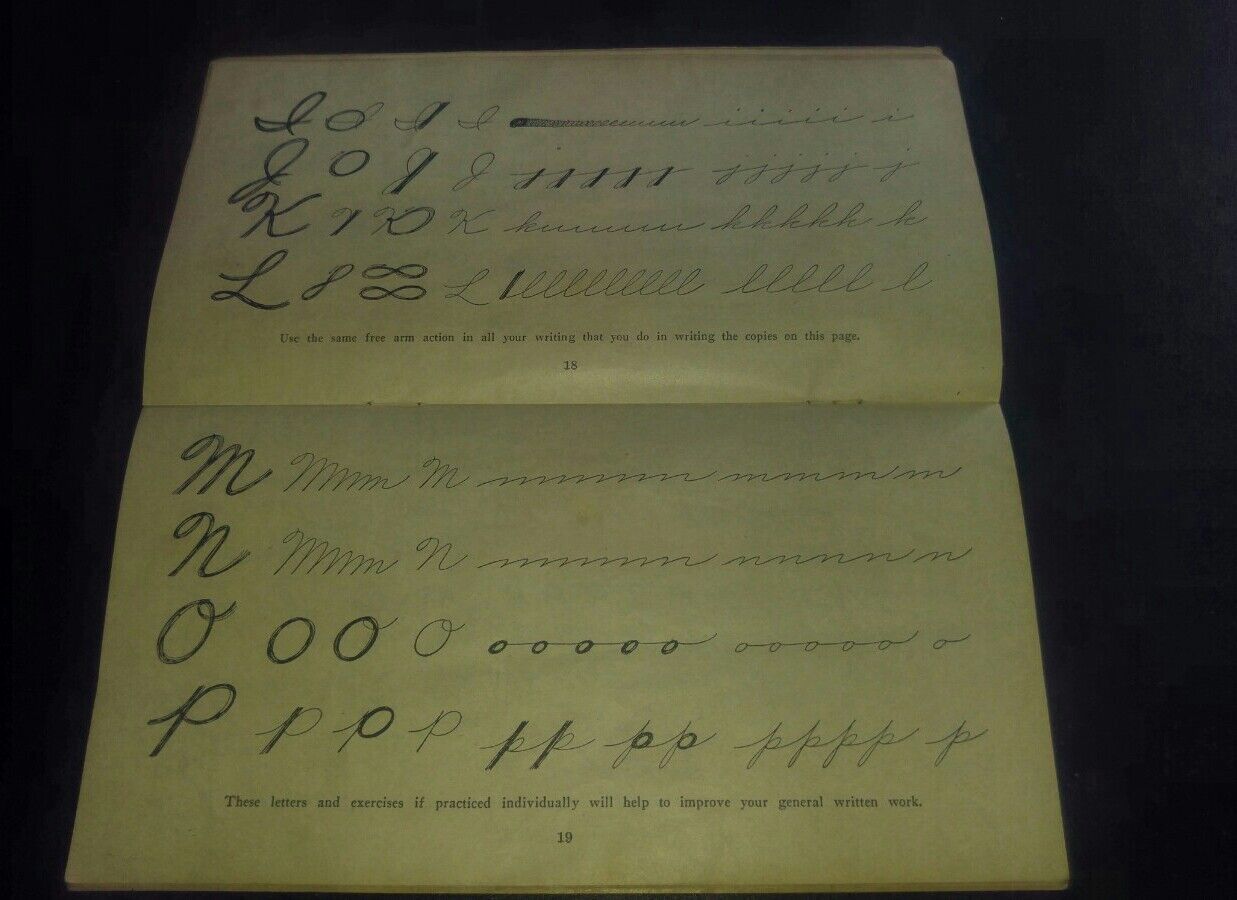 I O I I iiiii i
J O J J jjjjj j
K K K kuuuuu kkkkk k
L L lllllllll lllll l
Use the same free arm action in all your writing that you do in writing the copies on this page.
18
M Mmm M mmmmm m
N Mmm N nnnnn n
O O O O ooooo ooooo o
P P P P pp pp pppp p
These letters and exercises if practiced individually will help to improve your general written work.
19